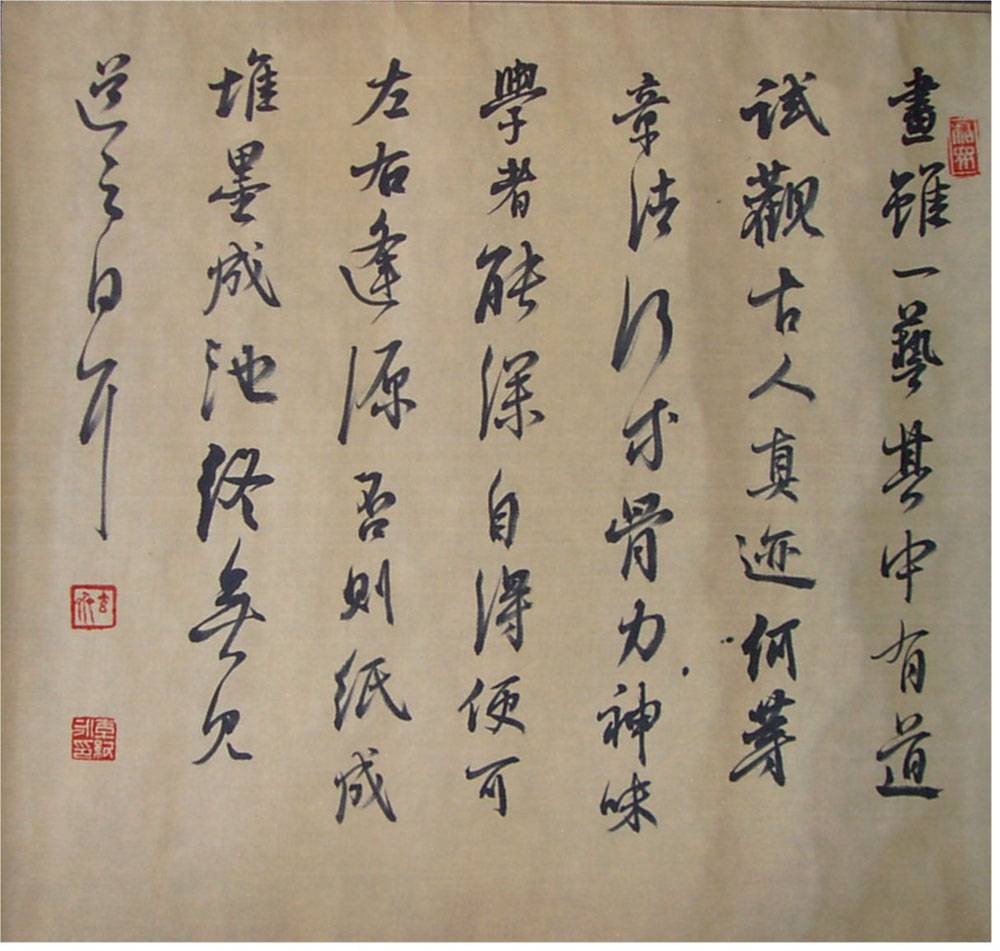 畫雖一藝其中有道
試觀古人真迹何等
章法何等骨力神味
學者能深自得便可
左右逢源否則紙成
堆墨成池終無見
道之日耳